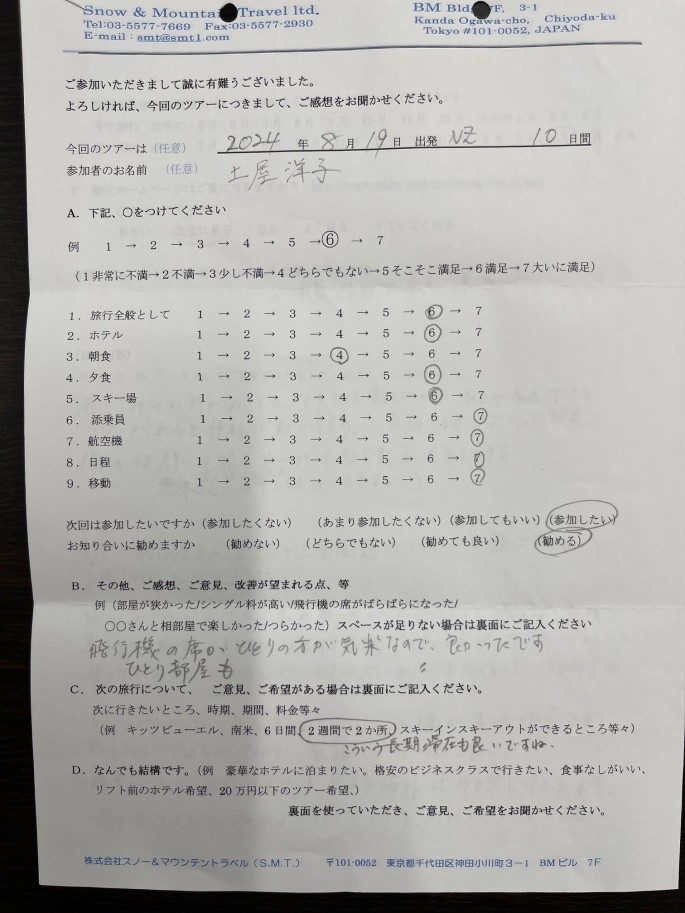 Snow & Mountain Travel ltd.
Tel:03-5577-7669 Fax:03-5577-2930
E-mail : smt@smt1.com
BM Bld 7F, 3-1
Kanda Ogawa-cho, Chiyoda-ku
Tokyo #101-0052, JAPAN
ご参加いただきまして誠に有難うございました。
よろしければ、今回のツアーにつきまして、ご感想をお聞かせください。
今回のツアーは（任意） 2024 年 8 月 19 日 出発 NZ 10 日間
参加者のお名前 （任意） 土屋 洋子
A. 下記、○をつけてください
例 1 → 2 → 3 → 4 → 5 →⑥ → 7
（１非常に不満→２不満→３少し不満→４どちらでもない→５そこそこ満足→６満足→７大いに満足）
１．旅行全般として 1 → 2 → 3 → 4 → 5 → 6 → 7
２．ホテル 1 → 2 → 3 → 4 → 5 → 6 → 7
３．朝食 1 → 2 → 3 → 4 → 5 → 6 → 7
４．夕食 1 → 2 → 3 → 4 → 5 → 6 → 7
５．スキー場 1 → 2 → 3 → 4 → 5 → 6 → 7
６．添乗員 1 → 2 → 3 → 4 → 5 → 6 → 7
７．航空機 1 → 2 → 3 → 4 → 5 → 6 → 7
８．日程 1 → 2 → 3 → 4 → 5 → 6 → 7
９．移動 1 → 2 → 3 → 4 → 5 → 6 → 7
次回は参加したいですか（参加したくない） （あまり参加したくない）（参加してもいい）（参加したい）
お知り合いに勧めますか （勧めない） （どちらでもない） （勧めても良い） （勧める）
Ｂ．その他、ご感想、ご意見、改善が望まれる点、等
例（部屋が狭かった/シングル料が高い/飛行機の席がばらばらになった/
○○さんと相部屋で楽しかった/つらかった）スペースが足りない場合は裏面にご記入ください
飛行機の席がひとりの方が気楽なので、良かったです
ひとり部屋も
Ｃ．次の旅行について、 ご意見、ご希望がある場合は裏面にご記入ください。
次に行きたいところ、時期、期間、料金等々
（例 キッツビューエル、南米、６日間、２週間で２か所、スキーインスキーアウトができるところ等々）
こういう長期滞在も良いですね。
Ｄ．なんでも結構です。（例 豪華なホテルに泊まりたい。格安のビジネスクラスで行きたい、食事なしがいい、
リフト前のホテル希望、20 万円以下のツアー希望、）
裏面を使っていただき、ご意見、ご希望をお聞かせください。
株式会社スノー＆マウンテントラベル（S.M.T.） 〒101-0052 東京都千代田区神田小川町３−１ BM ビル 7F